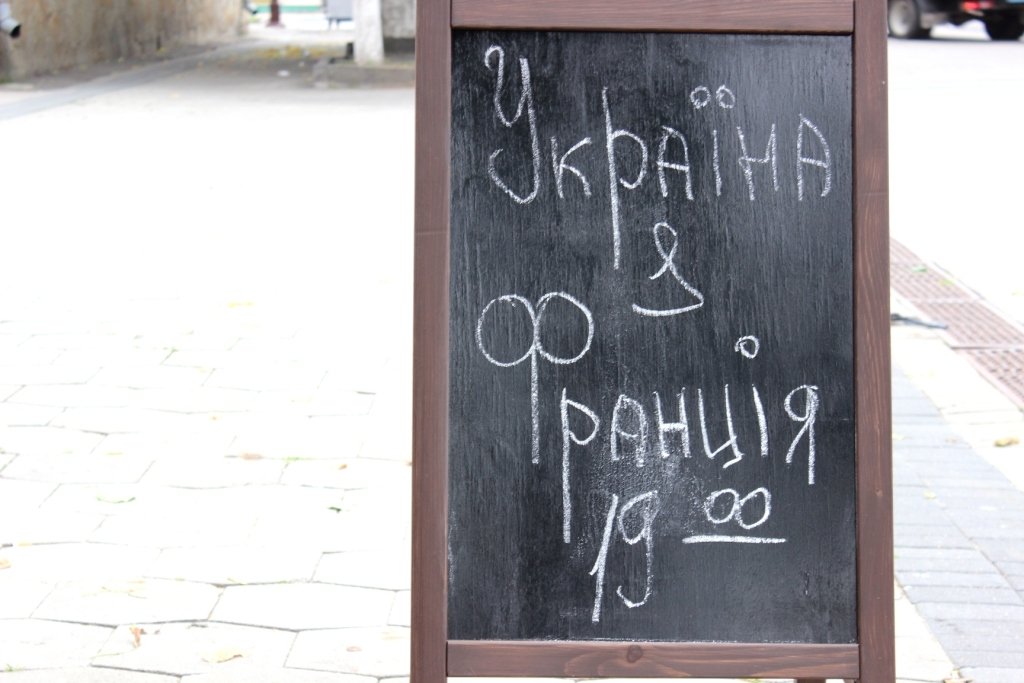 Україна
&
Франція
19 00